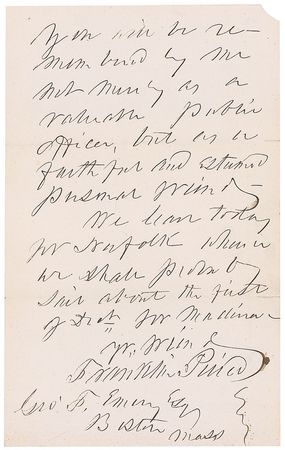 You will be re-
membered by me
not merely as a
valuable public
officer, but as a
faithful and esteemed
personal friend
We leave today
for Norfolk whence
we shall probably
sail about the first
of Dec. for Madeira
Yr. friend
Franklin Pierce
Geo. F. Emery Esq
Boston
Mass